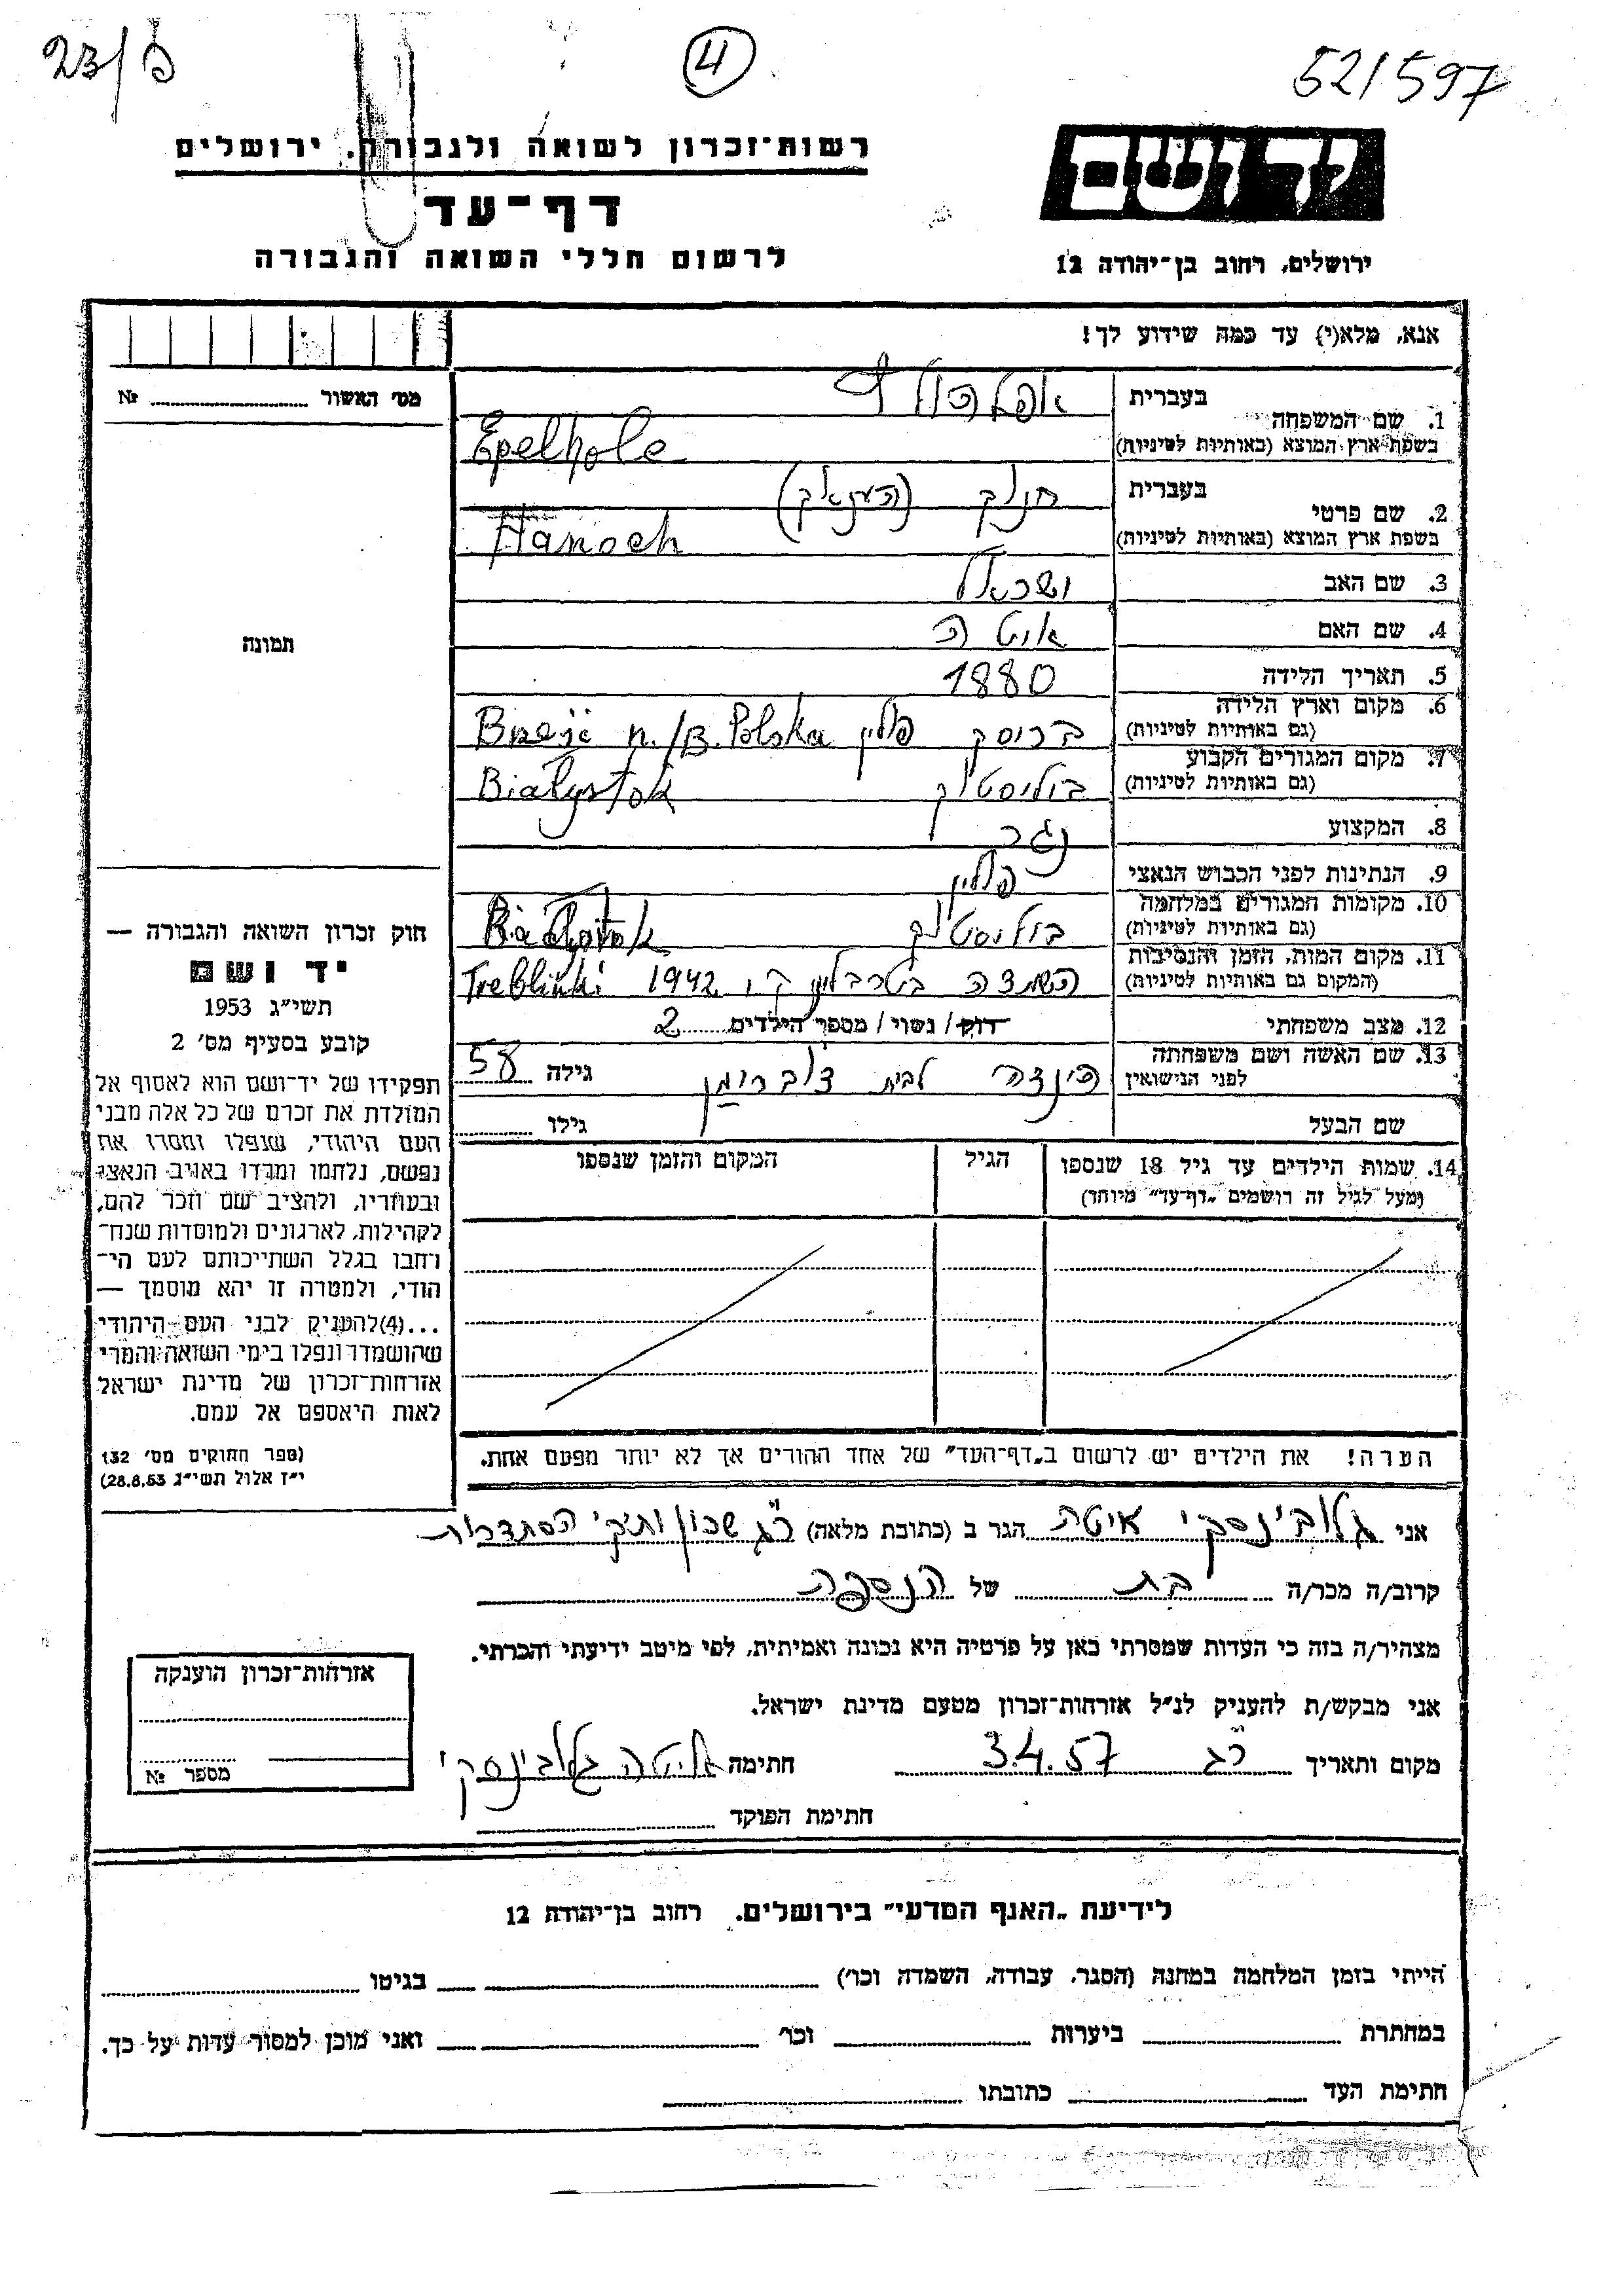 23/פ
4
52/597
רשות־זכרון לשואה ולגבורה, ירושלים
דף־עד
לרשום חללי השואה והגבורה
יד ושם
ירושלים, רחוב בן־יהודה 12
אנא, מלא(י) עד כמה שידוע לך!
מס' האשור № 
1. שם המשפחה בעברית
בשפת ארץ המוצא (באותיות לטיניות) Epelhole
2. שם פרטי בעברית חנוך (העניאך)
בשפת ארץ המוצא (באותיות לטיניות) Hanoch
3. שם האב ישראל
4. שם האם איטה
5. תאריך הלידה 1880
6. מקום וארץ הלידה (גם באותיות לטיניות) בריסק פולין Brześć n./B. Polska
7. מקום המגורים הקבוע (גם באותיות לטיניות) ביליסטוק Białystok
8. המקצוע נגר
9. הנתינות לפני הכבוש הנאצי פולין
10. מקומות המגורים במלחמה (גם באותיות לטיניות) ביליסטוק Białystok
11. מקום המות, הזמן והנסיבות (המקום גם באותיות לטיניות) השמדה 1942 Treblinki
12. מצב משפחתי רוק / נשוי / מספר הילדים 2
13. שם האשה ושם משפחתה לפני הנישואין לבית גילה 58
שם הבעל גילו
14. שמות הילדים עד גיל 18 שנספו (ומעל לגיל זה רושמים "דף־עד" מיוחד) הגיל המקום והזמן שנספו
הערה! את הילדים יש לרשום ב"דף־העד" של אחד ההורים אך לא יותר מפעם אחת.
תמונה
חוק זכרון השואה והגבורה —
יד ושם
תשי״ג 1953
קובע בסעיף מס' 2
תפקידו של יד־ושם הוא לאסוף אל
המולדת את זכרם של כל אלה מבני
העם היהודי, שנפלו ומסרו את
נפשם, נלחמו ומרדו באויב הנאצי
ובעוזריו, ולהציב שם וזכר להם,
לקהילות, לארגונים ולמוסדות שנח־
רחבו בגלל השתייכותם לעם הי־
הודי, ולמטרה זו יהא מוסמך —
...(4)להעניק לבני העם היהודי
שהושמדו ונפלו בימי השואה והמרי
אזרחות־זכרון של מדינת ישראל
לאות היאספם אל עמם.
(ספר החוקים מס' 132
י״ז אלול תשי״ג 28.8.53)
אני גלובינסקי איטה הגר ב (כתובת מלאה) ר״ג שכון ותיקי הסתדרות
קרוב/ה מכר/ה בת של הנספה
מצהיר/ה בזה כי העדות שמסרתי כאן על פרטיה היא נכונה ואמיתית, לפי מיטב ידיעתי והכרתי.
אני מבקש/ת להעניק לנ״ל אזרחות־זכרון מטעם מדינת ישראל.
מקום ותאריך ר״ג 3.4.57 חתימה איטה גלובינסקי
חתימת הפוקד
אזרחות־זכרון הוענקה
מספר №
לידיעת "האגף המדעי" בירושלים, רחוב בן־יהודה 12
הייתי בזמן המלחמה במחנה (הסגר, עבודה, השמדה וכו') בגיטו
במחתרת ביערות וכו' ואני מוכן למסור עדות על כך.
חתימת העד כתובתו